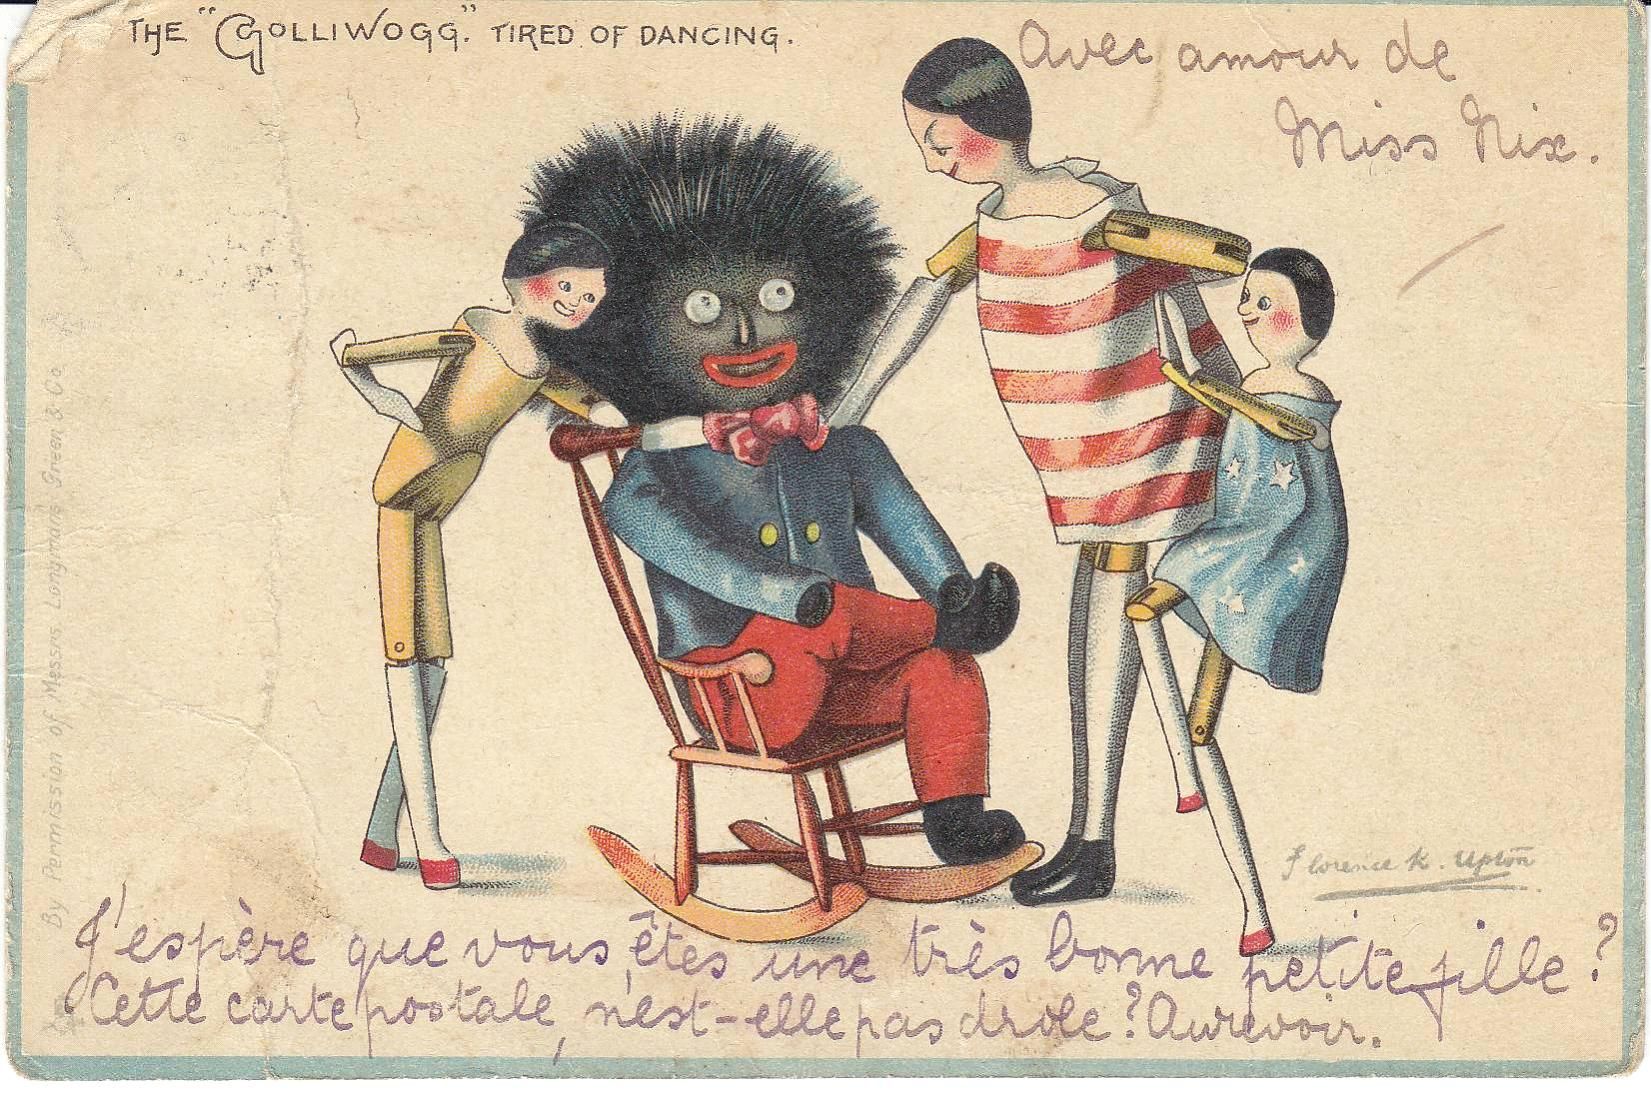 THE "GOLLIWOGG." TIRED OF DANCING.
Avec amour de
Miss Nix.
By Permission of Messrs Longmans Green & Co.
Florence K. Upton
J'espère que vous êtes une très bonne petite fille?
Cette carte postale, n'est-elle pas drole? Au revoir.